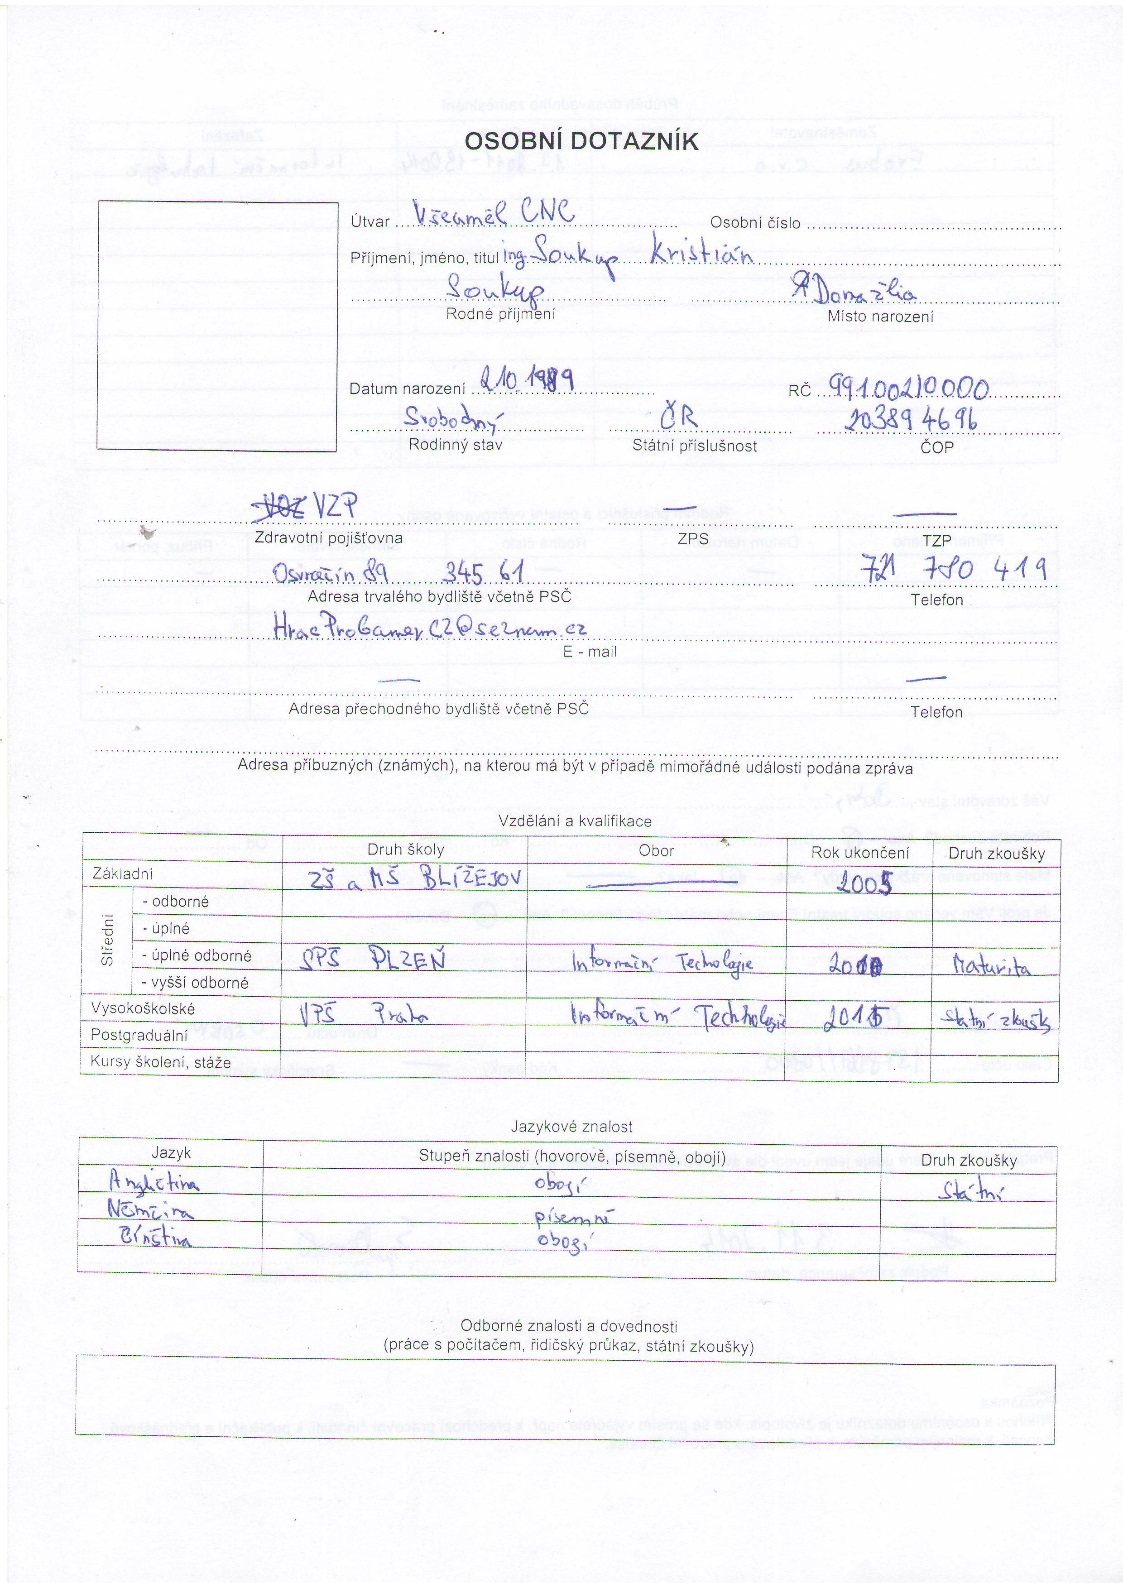 OSOBNÍ DOTAZNÍK
Útvar Všeuměl CNC Osobní číslo
Příjmení, jméno, titul ing. Soukup Kristián
Soukup Domažlia
Rodné příjmení Místo narození
Datum narození 2.10.1989 RČ 99100210000
Svobodný ČR 203894696
Rodinný stav Státní příslušnost ČOP
VZP — —
Zdravotní pojišťovna ZPS TZP
Osvračín 89 345 61 721 780 419
Adresa trvalého bydliště včetně PSČ Telefon
HracProGamerCZ@seznam.cz
E - mail
— —
Adresa přechodného bydliště včetně PSČ Telefon
Adresa příbuzných (známých), na kterou má být v případě mimořádné události podána zpráva
Vzdělání a kvalifikace
Druh školy Obor Rok ukončení Druh zkoušky
Základní ZŠ a MŠ BLÍŽEJOV — 2005
Střední
- odborné
- úplné
- úplné odborné SPŠ PLZEŇ Informační Techologie 2010 Maturita
- vyšší odborné
Vysokoškolské VPŠ Praha Informační Techhologie 2015 státní zkoušk
Postgraduální
Kursy školení, stáže
Jazykové znalost
Jazyk Stupeň znalosti (hovorově, písemně, obojí) Druh zkoušky
Angličtina obojí Státní
Němčina písemně
Čínština obojí
Odborné znalosti a dovednosti
(práce s počítačem, řidičský průkaz, státní zkoušky)